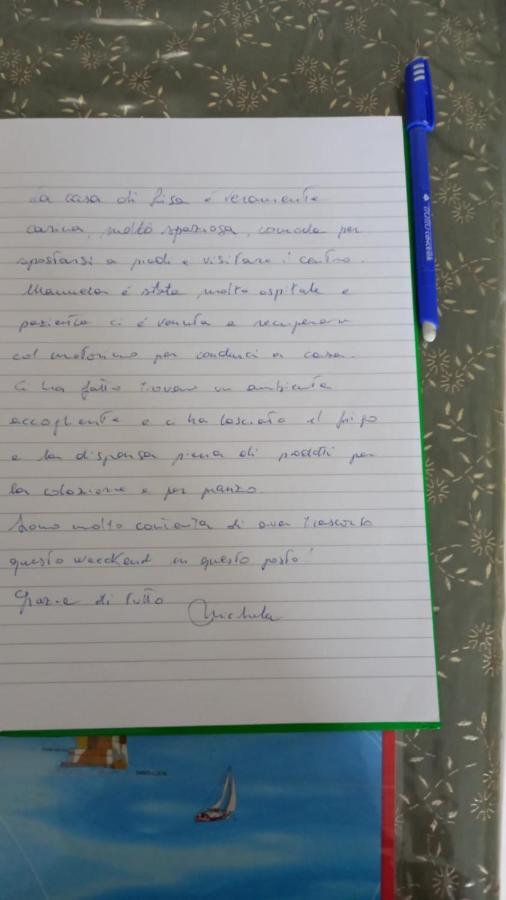 La casa di Pisa è veramente
carina, molto spaziosa, comoda per
spostarsi a piedi e visitare i centro.
Manuela è stata molto ospitale e
paziente ci è venuta a recuperare
col motorino per condurci a casa.
Ci ha fatto trovare un ambiente
accogliente e ci ha lasciato il frigo
e la dispensa piena di prodotti per
la colazione e per pranzo.
Sono molto contenta di aver trascorso
questo weeckend in questo posto!
Grazie di tutto Michela